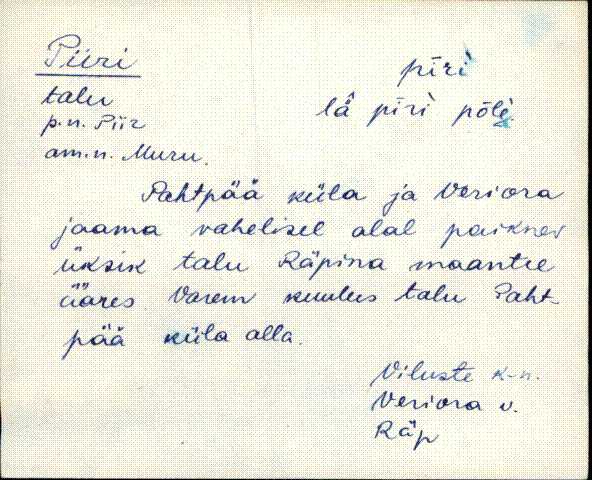 Piiri
pīrì̬
talu
lǟ pīrì̬ pōlè̬
p.n. Piir
am.n. Muru.
Pahtpää küla ja Veriora
jaama vahelisel alal paiknev
üksik talu Räpina maantee
ääres. Varem kuulus talu Paht-
pää küla alla.
Viluste k-n.
Veriora v.
Räp